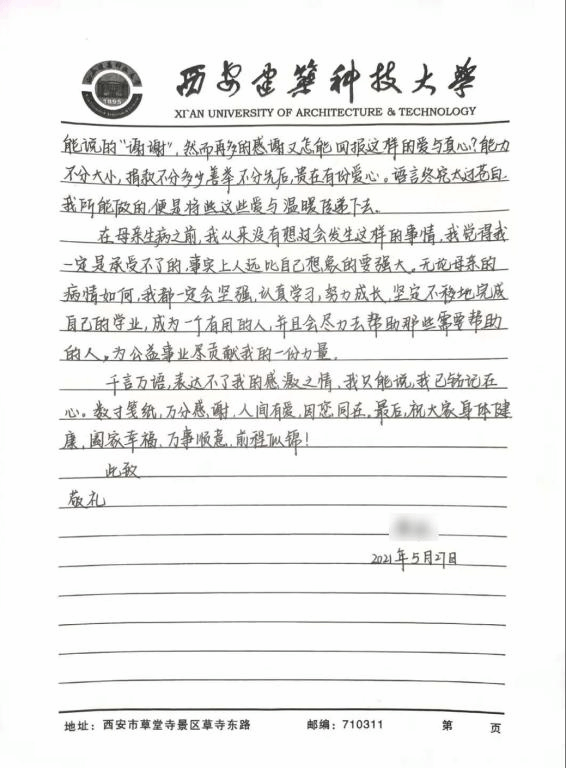 1895
西安建筑科技大学
XI'AN UNIVERSITY OF ARCHITECTURE & TECHNOLOGY
能说的“谢谢”,然而再多的感谢又怎能回报这样的爱与真心?能力
不分大小,捐款不分多少,善举不分先后,贵在有份爱心。语言终究太过苍白,
我所能做的,便是将些这些爱与温暖传递下去。
在母亲生病之前,我从来没有想过会发生这样的事情,我觉得我
一定是承受不了的,事实上人远比自己想象的要强大。无论母亲的
病情如何,我都一定会坚强,认真学习,努力成长,坚定不移地完成
自己的学业,成为一个有用的人,并且会尽力去帮助那些需要帮助
的人,为公益事业尽贡献我的一份力量。
千言万语,表达不了我的感激之情,我只能说,我已铭记在
心。数寸笺纸,万分感谢,人间有爱,因您同在。最后,祝大家身体健
康,阖家幸福,万事顺意,前程似锦!
此致
敬礼
2021年5月27日
地址:西安市草堂寺景区草寺东路 邮编:710311 第 页